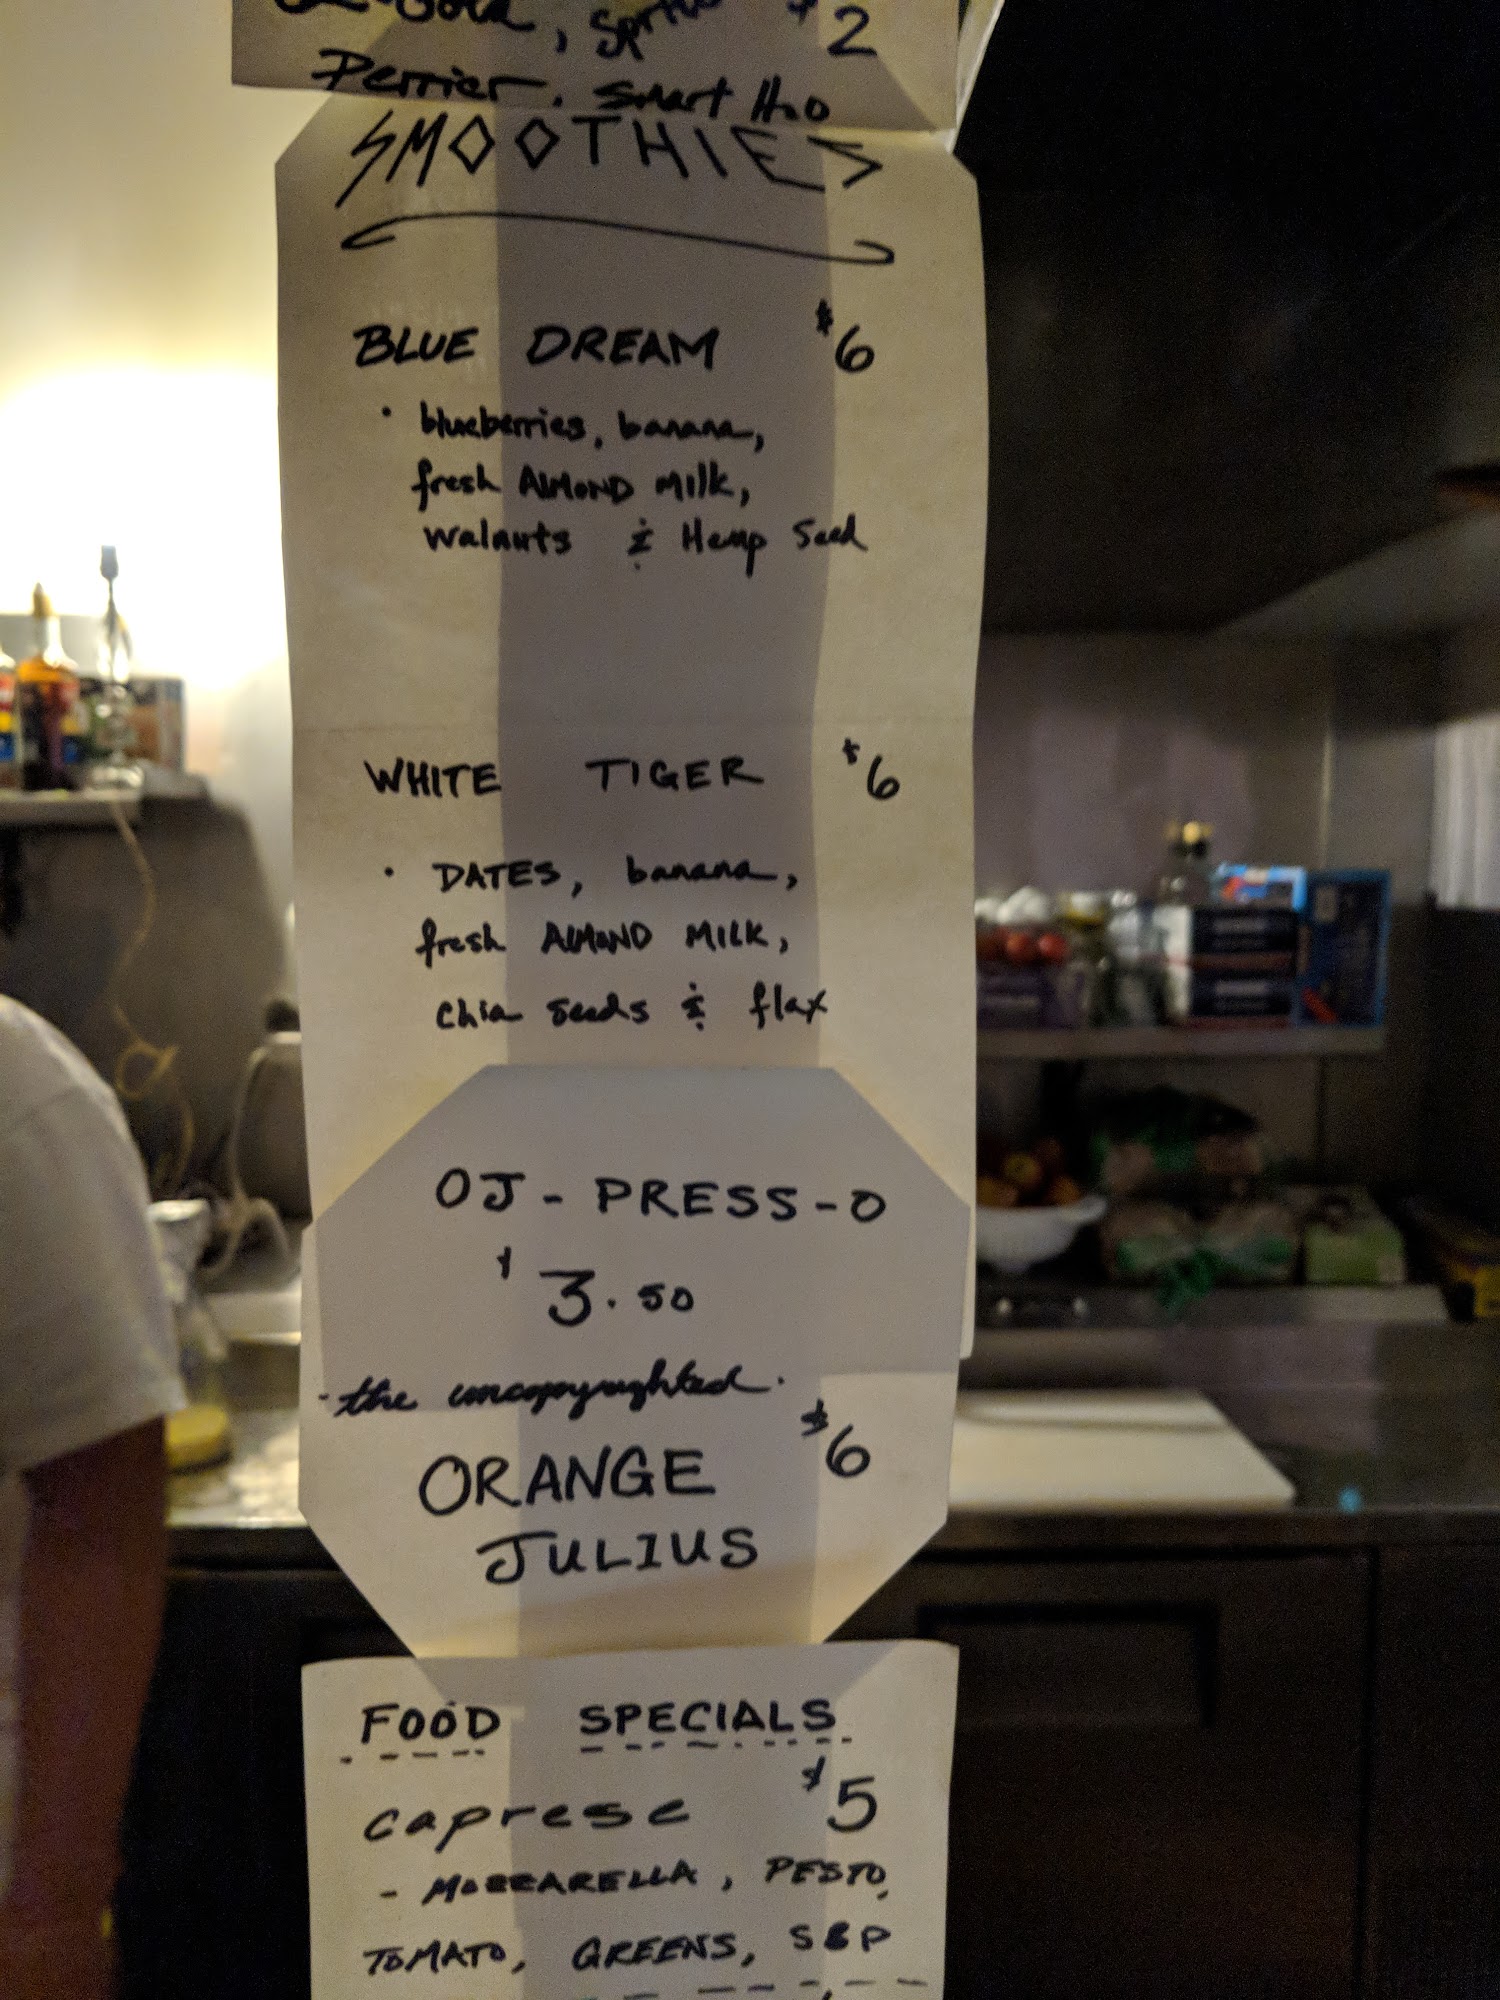 , Sprite $2
Perrier, Smart H2O
SMOOTHIES
BLUE DREAM $6
• blueberries, banana,
fresh ALMOND Milk,
walnuts & Hemp Seed
WHITE TIGER $6
• DATES, banana,
fresh ALMOND MILK,
chia seeds & flax
OJ-PRESS-O
$3.50
-the uncopyrighted-
ORANGE $6
JULIUS
FOOD SPECIALS
caprese $5
- MOZZARELLA, PESTO,
TOMATO, GREENS, S&P